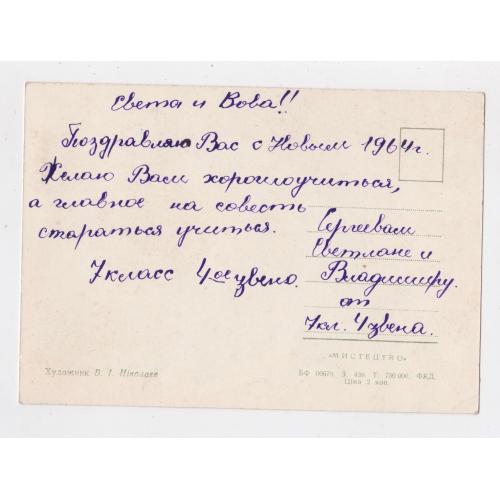 Света и Вова!!
Поздравляю Вас с Новым 1964г.
Желаю Вам хорошоучиться,
а главное на совесть
стараться учиться.
7класс 4ое звено.
Сергеевам
Светлане и
Владимиру.
от
7кл. 4 звена.
Художник В. І. Ніколаєв
«МИСТЕЦТВО»
БФ 00679. З. 430. Т. 750 000. ФКД.
Ціна 2 коп.